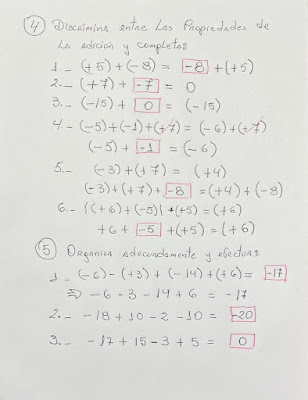 ④ Discrimina entre las Propiedades de
la adición y completa:
1.- (+5)+(-8) = -8 +(+5)
2.- (+7)+ -7 = 0
3.- (-15)+ 0 = (-15)
4.- (-5)+(-1)+(+7) = (-6)+(+7)
(-5)+ -1 = (-6)
5.- (-3)+(+7) = (+4)
(-3)+(+7)+ -8 =(+4)+(-8)
6.- {(+6)+(-5)}+(+5) = (+6)
+6 + -5 +(+5) = (+6)
⑤ Organiza adecuadamente y efectúa:
1.- (-6)-(+3)+(-14)+(+6)= -17
⇒ -6-3-14+6 = -17
2.- -18+10-2-10 = -20
3.- -17+15-3+5 = 0